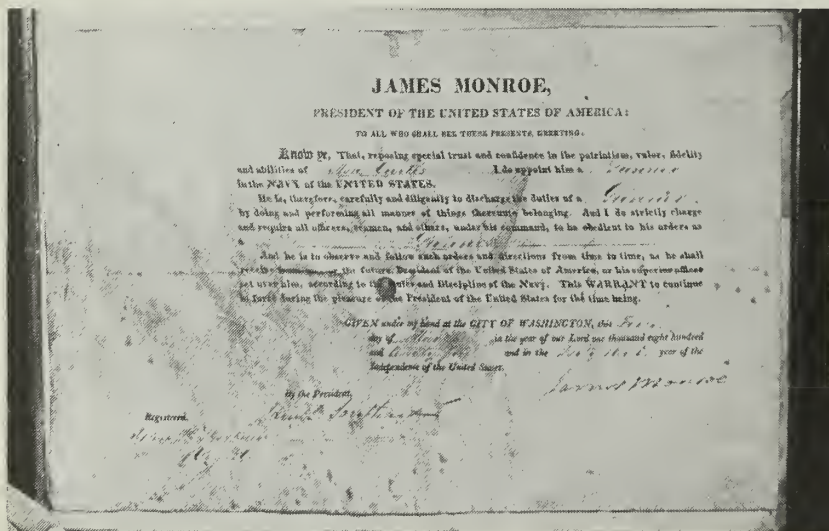 JAMES MONROE,
PRESIDENT OF THE UNITED STATES OF AMERICA:
TO ALL WHO SHALL SEE THESE PRESENTS, GREETING:
Know ye, That, reposing special trust and confidence in the patriotism, valor, fidelity
and abilities of Asa Curtis I do appoint him a Gunner
in the NAVY of the UNITED STATES.
He is, therefore, carefully and diligently to discharge the duties of a Gunner
by doing and performing all manner of things thereunto belonging. And I do strictly charge
and require all officers, seamen, and others, under his command, to be obedient to his orders as
a Gunner
And he is to observe and follow such orders and directions from time to time, as he shall
receive the future President of the United States of America, or his superior officer
set over him, according to the Rules and Discipline of the Navy. This WARRANT to continue
in force during the pleasure of the President of the United States for the time being.
GIVEN under my hand at the CITY OF WASHINGTON, this
day of in the year of our Lord one thousand eight hundred
and and in the year of the
Independence of the United States.
James Monroe
By the President,
Registered.